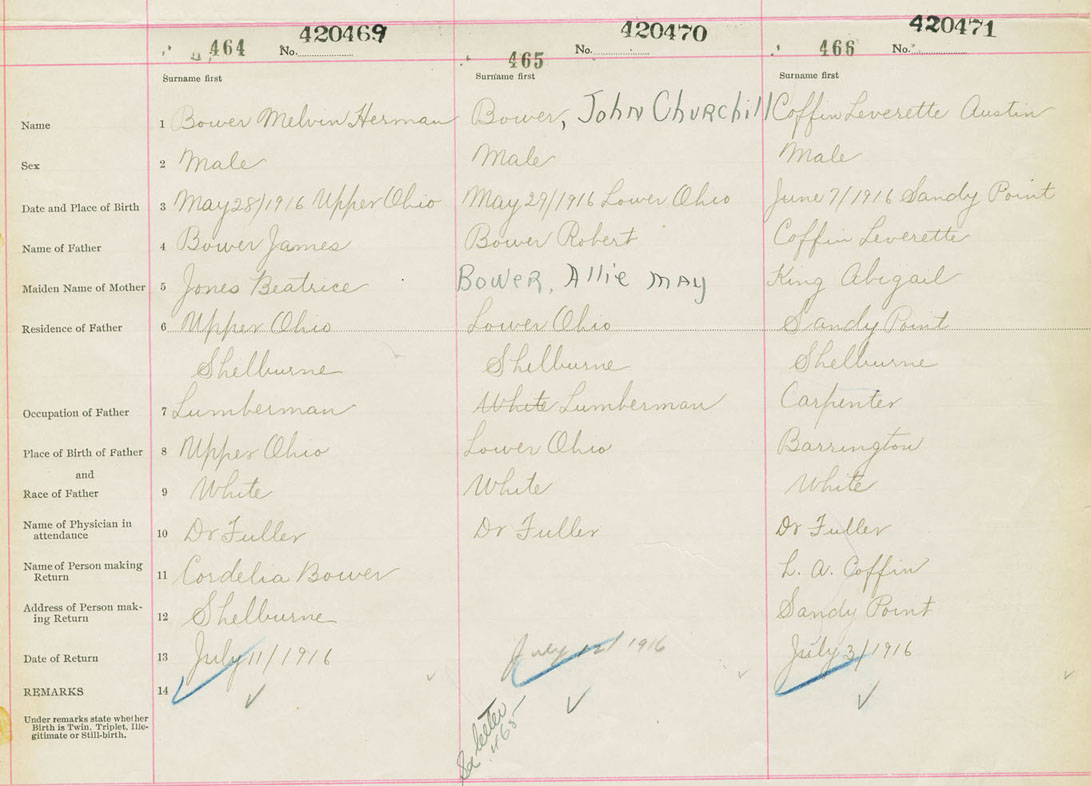 464 No. 420469 465 No. 420470 466 No. 420471
Surname first Surname first Surname first
Name 1 Bower Melvin Herman Bower, John Churchill Coffin Leverette Austin
Sex 2 Male Male Male
Date and Place of Birth 3 May 28/1916 Upper Ohio May 29/1916 Lower Ohio June 7/1916 Sandy Point
Name of Father 4 Bower James Bower Robert Coffin Leverette
Maiden Name of Mother 5 Jones Beatrice Bower, Allie May King Abigail
Residence of Father 6 Upper Ohio Lower Ohio Sandy Point
Shelburne Shelburne Shelburne
Occupation of Father 7 Lumberman White Lumberman Carpenter
Place of Birth of Father 8 Upper Ohio Lower Ohio Barrington
and
Race of Father 9 White White White
Name of Physician in
attendance 10 Dr Fuller Dr Fuller Dr Fuller
Name of Person making
Return 11 Cordelia Bower L. A. Coffin
Address of Person mak-
ing Return 12 Shelburne Sandy Point
Date of Return 13 July 11/1916 July 12/1916 July 3/1916
REMARKS 14
Under remarks state whether
Birth is Twin, Triplet, Ille-
gitimate or Still-birth.
465